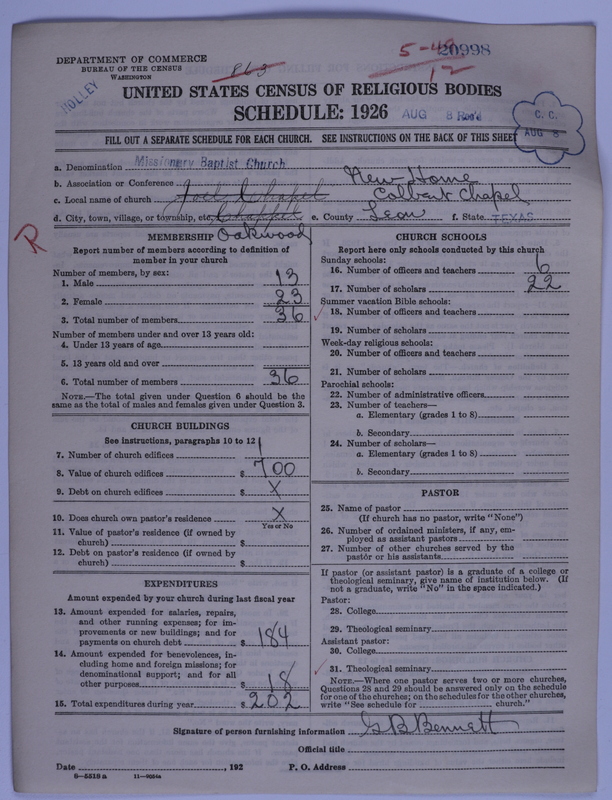 5-48 20998
12
DEPARTMENT OF COMMERCE
BUREAU OF THE CENSUS
WASHINGTON
863
HOLLEY
UNITED STATES CENSUS OF RELIGIOUS BODIES
SCHEDULE: 1926 AUG 8 Rec'd
C. C.
AUG 8
FILL OUT A SEPARATE SCHEDULE FOR EACH CHURCH. SEE INSTRUCTIONS ON THE BACK OF THIS SHEET
a. Denomination Missionary Baptist Church
b. Association or Conference New Home
c. Local name of church Joel Chapel Colbert Chapel
d. City, town, village, or township, etc. Chappel e. County Leon f. State TEXAS
Oakwood
R
MEMBERSHIP
Report number of members according to definition of
member in your church
Number of members, by sex:
1. Male 13
2. Female 23
3. Total number of members 36
Number of members under and over 13 years old:
4. Under 13 years of age
5. 13 years old and over
6. Total number of members 36
NOTE.—The total given under Question 6 should be the
same as the total of males and females given under Question 3.
CHURCH BUILDINGS
See instructions, paragraphs 10 to 12
7. Number of church edifices 1
8. Value of church edifices $ 700
9. Debt on church edifices $ X
10. Does church own pastor's residence X
Yes or No
11. Value of pastor's residence (if owned by
church) $
12. Debt on pastor's residence (if owned by
church) $
EXPENDITURES
Amount expended by your church during last fiscal year
13. Amount expended for salaries, repairs,
and other running expenses; for im-
provements or new buildings; and for
payments on church debt $ 184
14. Amount expended for benevolences, in-
cluding home and foreign missions; for
denominational support; and for all
other purposes $ 18
15. Total expenditures during year $ 202
CHURCH SCHOOLS
Report here only schools conducted by this church
Sunday schools:
16. Number of officers and teachers 6
17. Number of scholars 22
Summer vacation Bible schools:
18. Number of officers and teachers
19. Number of scholars
Week-day religious schools:
20. Number of officers and teachers
21. Number of scholars
Parochial schools:
22. Number of administrative officers
23. Number of teachers—
a. Elementary (grades 1 to 8)
b. Secondary
24. Number of scholars—
a. Elementary (grades 1 to 8)
b. Secondary
PASTOR
25. Name of pastor
(If church has no pastor, write "None")
26. Number of ordained ministers, if any, em-
ployed as assistant pastors
27. Number of other churches served by the
pastor or his assistants
If pastor (or assistant pastor) is a graduate of a college or
theological seminary, give name of institution below. (If
not a graduate, write "No" in the space indicated.)
Pastor:
28. College
29. Theological seminary
Assistant pastor:
30. College
31. Theological seminary
NOTE.—Where one pastor serves two or more churches,
Questions 28 and 29 should be answered only on the schedule
for one of the churches; on the schedules for the other churches,
write "See schedule for church."
Signature of person furnishing information G B Bennett
Official title
Date , 192 P. O. Address
8-5518 a 11-9054a